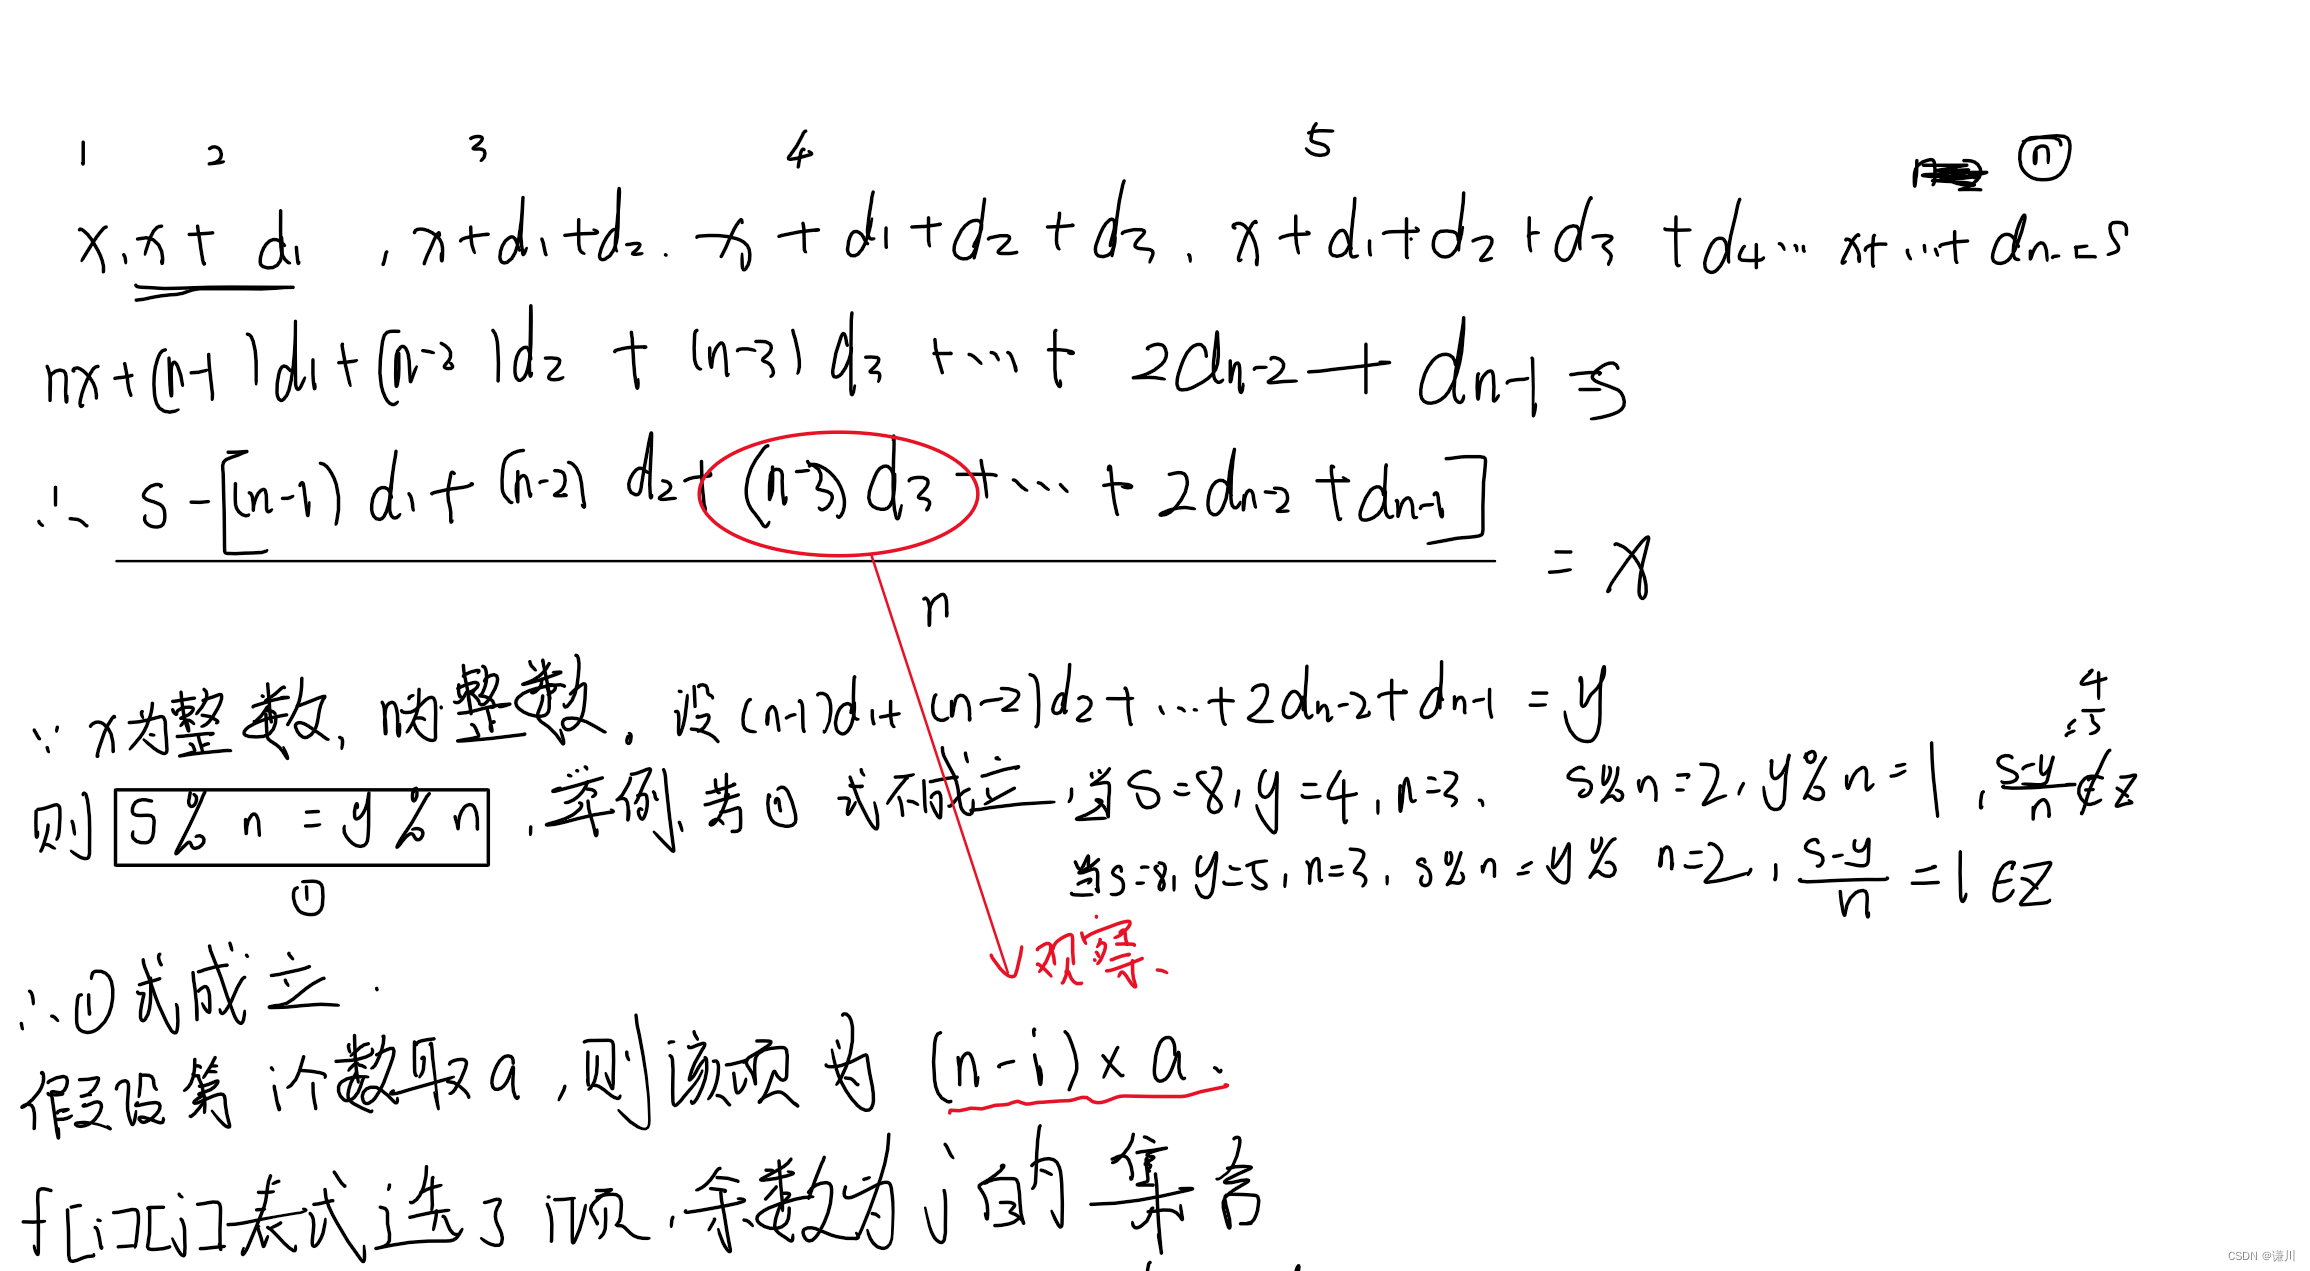 1 2 3 4 5 ⓝ
x, x+d1, x+d1+d2, x+d1+d2+d3, x+d1+d2+d3+d4… x+…+dn-=S
nx+(n-1)d1+(n-2)d2+(n-3)d3+…+2dn-2+dn-1=S
∴ S-[(n-1)d1+(n-2)d2+(n-3)d3+…+2dn-2+dn-1]
= x
n
∵ x为整数, n为整数. 设(n-1)d1+(n-2)d2+…+2dn-2+dn-1=y
则 S%n=y%n, 举例, 若① 式不成立, 当S=8, y=4, n=3, S%n=2, y%n=1, (S-y)/n ∉Z
4/3
①
当S=8, y=5, n=3, S%n=y%n=2, (S-y)/n=1∈Z
∴①式成立.
观察、
假设第i个数取a, 则该项为(n-i)×a.
f[i][j]表式选了i项, 余数为j的集合
CSDN @谦川